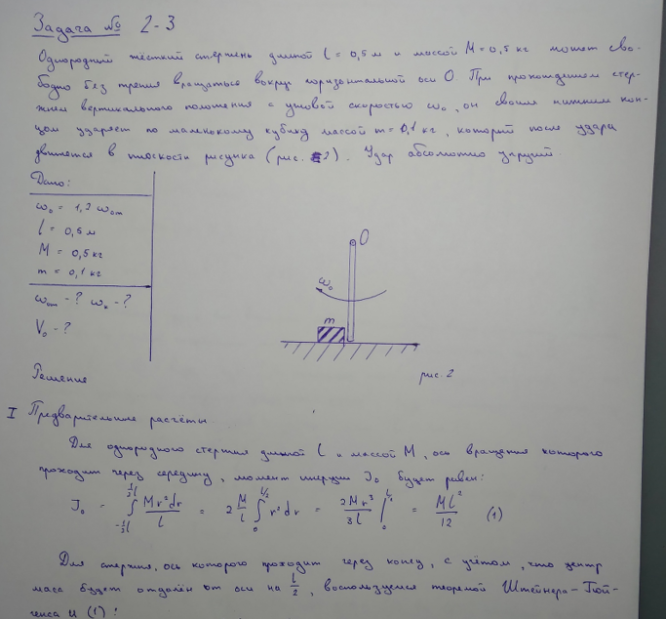 Задача № 2-3
Однородный жёсткий стержень длиной l = 0,5 м и массой M = 0,5 кг может сво-
бодно без трения вращаться вокруг горизонтальной оси O. При прохождении стер-
жнем вертикального положения с угловой скоростью ω₀, он своим нижним кон-
цом ударяет по маленькому кубику массой m = 0,1 кг, который после удара
движется в плоскости рисунка (рис. 2). Удар абсолютно упругий.
Дано:
ω₀ = 1,2 ω₀m
l = 0,5 м
M = 0,5 кг
m = 0,1 кг
ω₀m - ? ω₀ - ?
V₀ - ?
O
ω₀
m
рис. 2
Решение
I Предварительные расчёты.
Для однородного стержня длиной l и массой M, ось вращения которого
проходит через середину, момент инерции J₀ будет равен:
J₀ = ∫_{-½l}^{½l} Mr²dr/l = 2 M/l ∫_0^{l/2} r²dr = 2Mr³/3l |_0^{l/2} = Ml²/12 (1)
Для стержня, ось которого проходит через конец, с учётом, что центр
масс будет отдалён от оси на l/2, воспользуемся теоремой Штейнера-Гюй-
генса и (1):